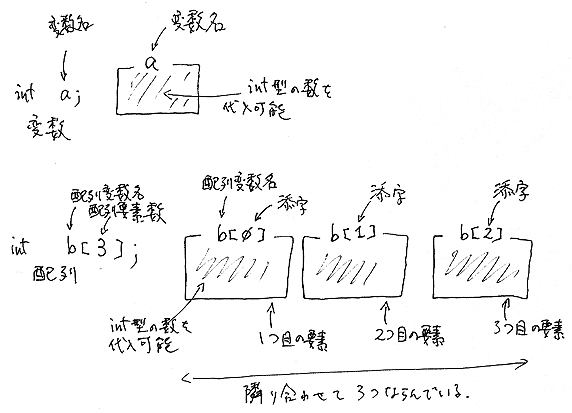 変数名
変数名
int a;
a
変数
int型の数を
代入可能
配列変数名
配列要素数
int b[3];
配列
配列変数名
添字
添字
添字
b[0]
b[1]
b[2]
int型の数を
代入可能
1つ目の要素
2つ目の要素
3つ目の要素
隣り合わせて3つならんでいる.